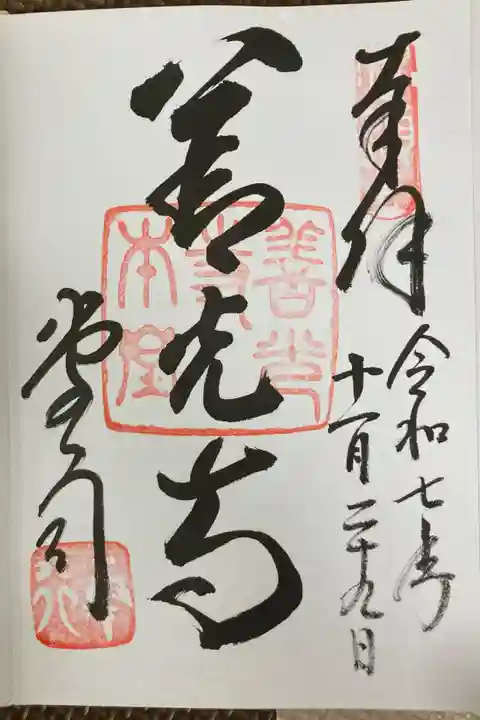 奉拝
令和七年
十一月二十九日
善光寺
堂司
善光
本堂